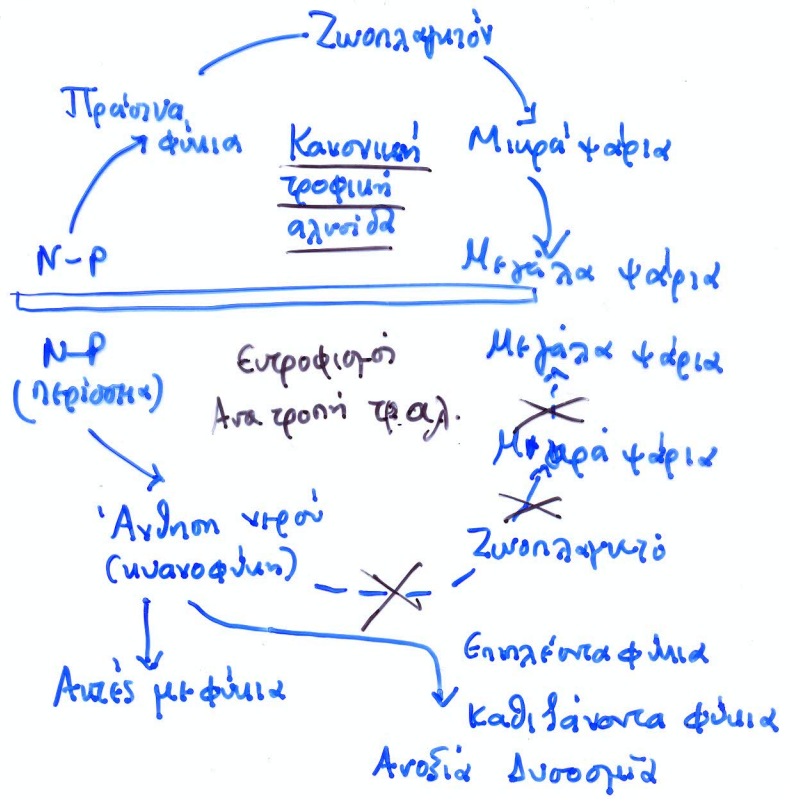 Ζωοπλαγκτόν
Πράσινα
φύκια
Κανονική
τροφική
αλυσίδα
Μικρά ψάρια
N-P
Μεγάλα ψάρια
N-P
(περίσσεια)
Ευτροφισμός
Ανατροπή τρ. αλ.
Μεγάλα ψάρια
Μικρά ψάρια
Άνθηση νερού
(κυανοφύκη)
Ζωοπλαγκτό
Ακτές με φύκια
Επιπλέοντα φύκια
Καθιζάνοντα φύκια
Ανοξία Δυσοσμία